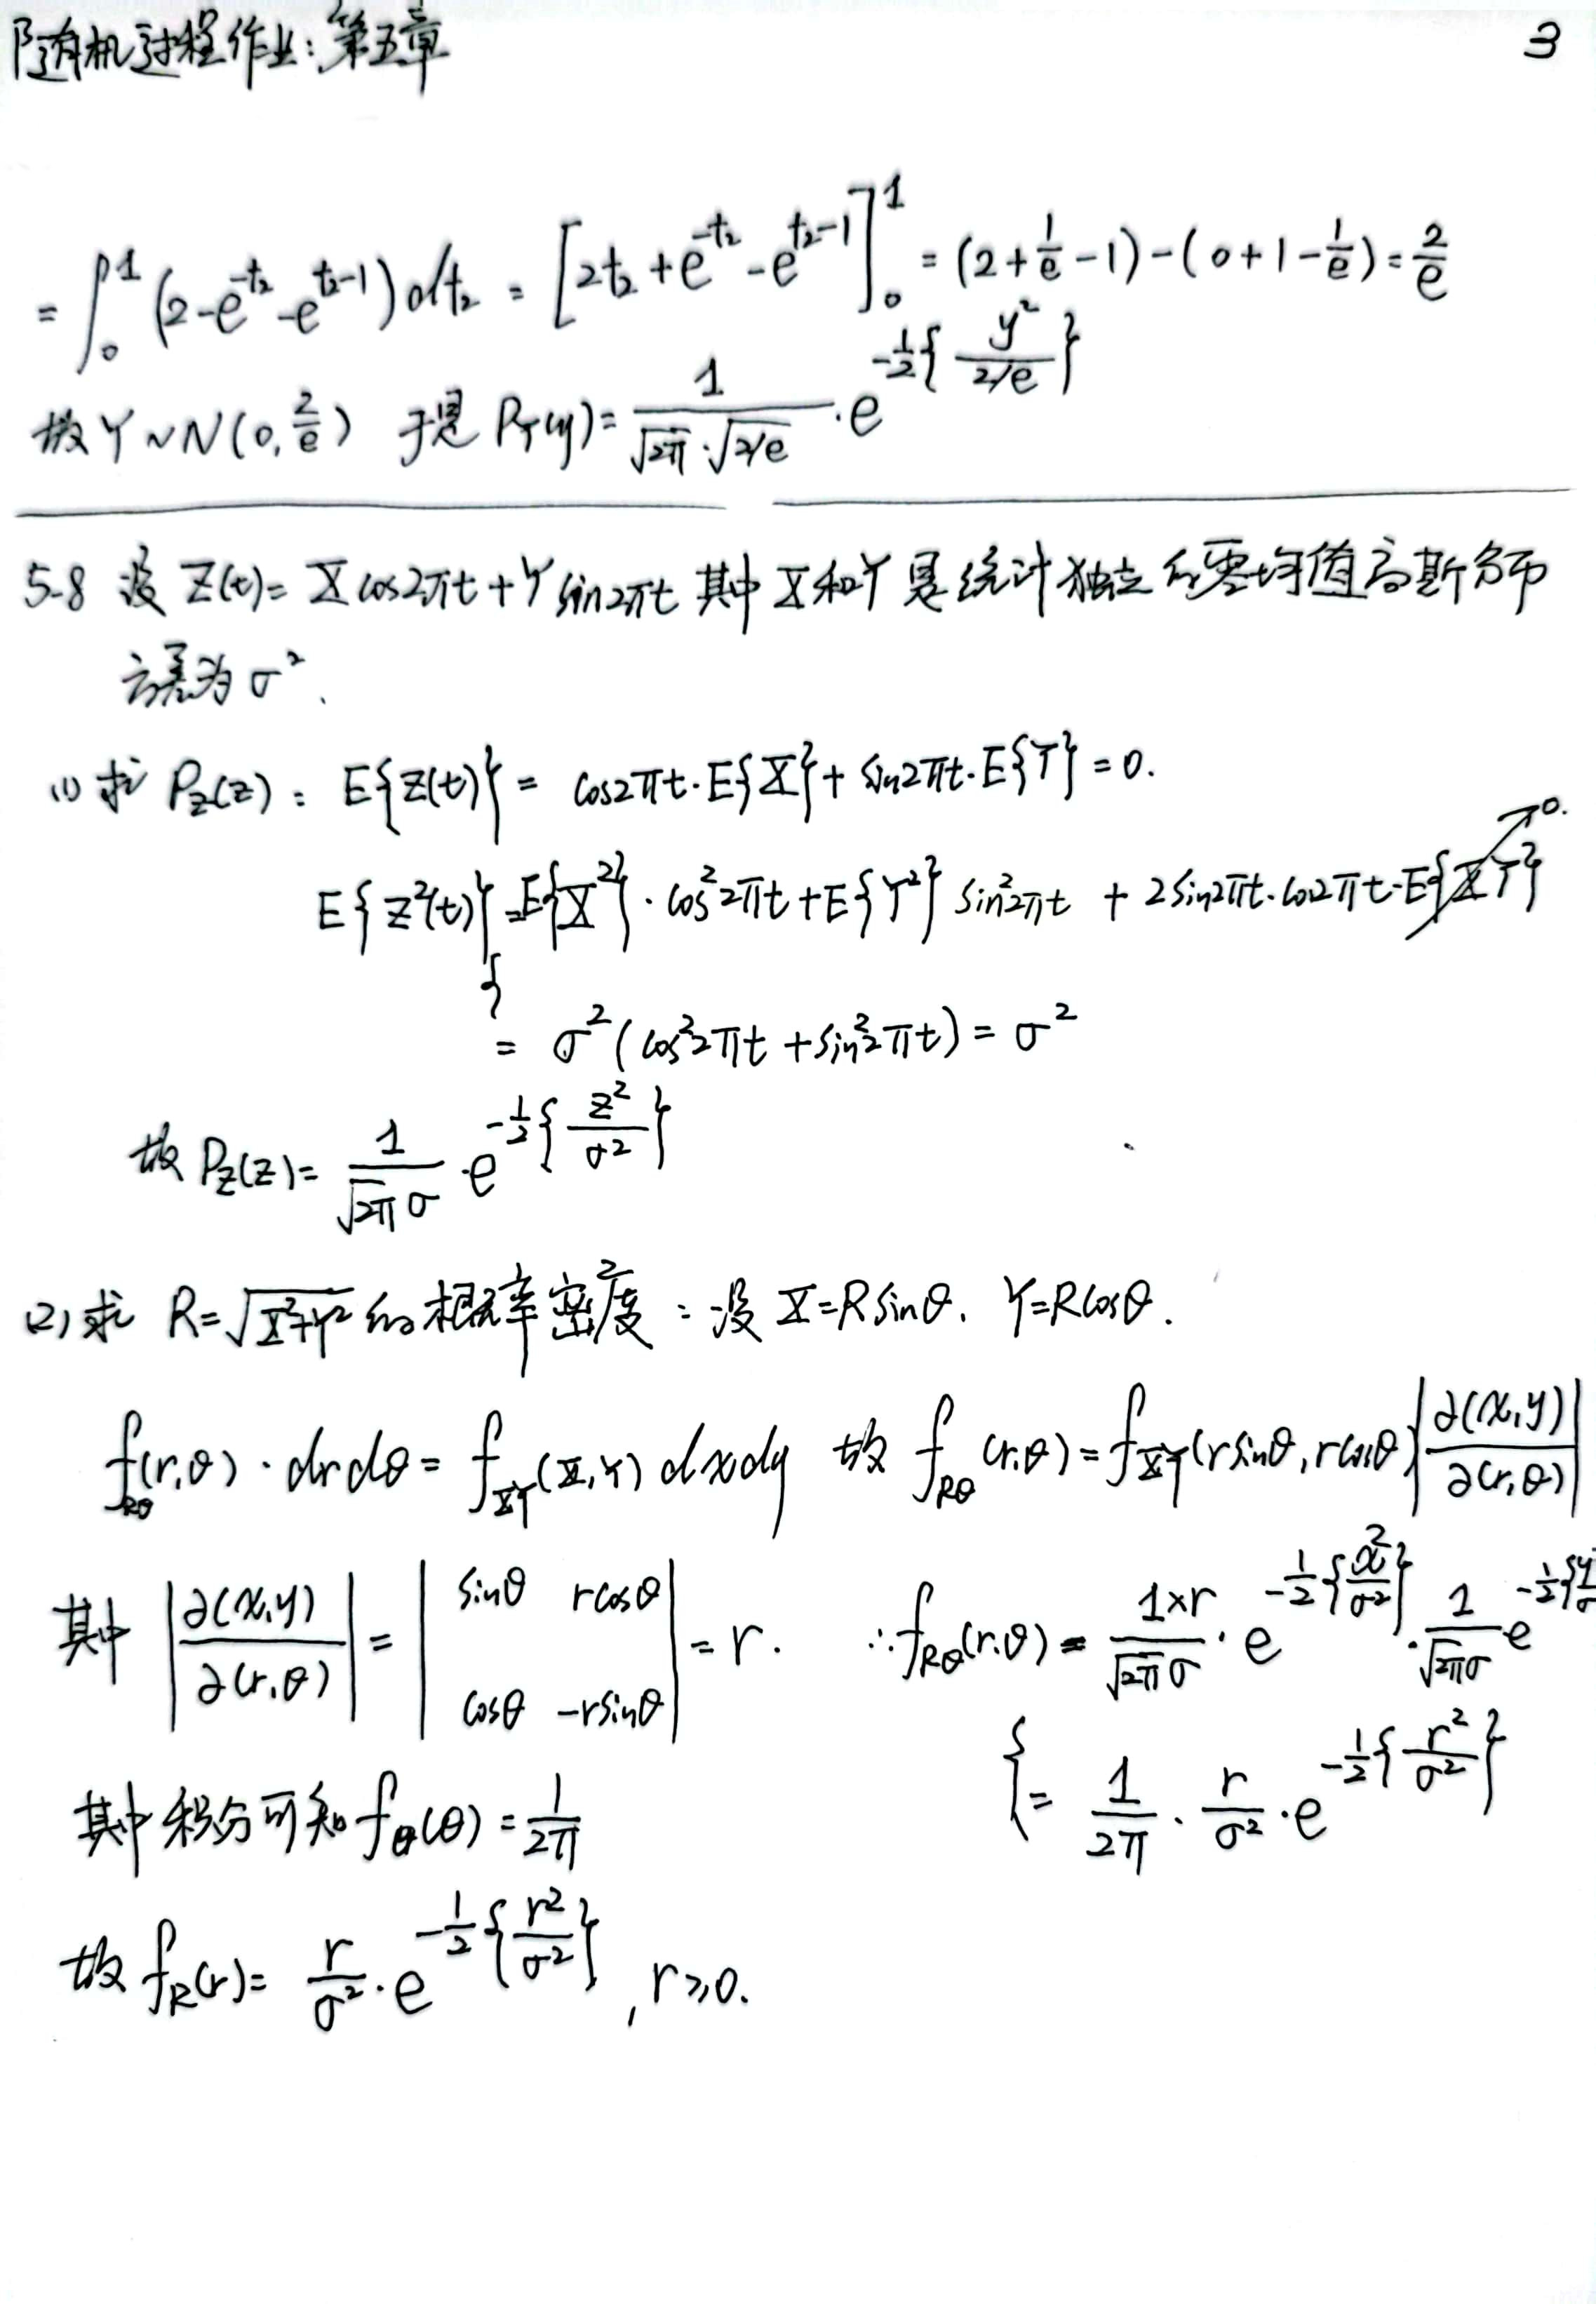 随机过程作业：第五章 3
= ∫₀¹ (2-e^{-t₂}-e^{t₂-1}) dt₂ = [2t₂+e^{-t₂}-e^{t₂-1}]₀¹ = (2+1/e-1)-(0+1-1/e) = 2/e
故 Y~N(0, 2/e) 于是 P_Y(y) = 1/(√2π·√2/e) · e^{-1/2{y²/(2/e)}}
5-8 设 Z(t) = X cos2πt + Y sin2πt 其中 X和Y 是统计独立的零均值高斯分布
方差为σ².
(1) 求 P_Z(z)： E{Z(t)} = cos2πt·E{X} + sin2πt·E{Y} = 0.
E{Z²(t)} = E{X²}·cos²2πt + E{Y²} sin²2πt + 2sin2πt·cos2πt·E{XY} → 0.
= σ²(cos²2πt + sin²2πt) = σ²
故 P_Z(z) = 1/(√2π σ) · e^{-1/2{z²/σ²}}
(2) 求 R=√X²+Y² 的概率密度：设 X=Rsinθ. Y=Rcosθ.
f_{Rθ}(r,θ)·drdθ = f_{XY}(X,Y) dxdy 故 f_{Rθ}(r,θ) = f_{XY}(rsinθ, rcosθ)|∂(x,y)/∂(r,θ)|
其中 |∂(x,y)/∂(r,θ)| = |sinθ rcosθ; cosθ -rsinθ| = r. ∴f_{Rθ}(r,θ) = (1×r)/(√2π σ) · e^{-1/2{x²/σ²}} · 1/(√2π σ) e^{-1/2{y
{= 1/2π · r/σ² · e^{-1/2{r²/σ²}}
其中积分可知 f_θ(θ) = 1/2π
故 f_R(r) = r/σ² · e^{-1/2{r²/σ²}}, r≥0.